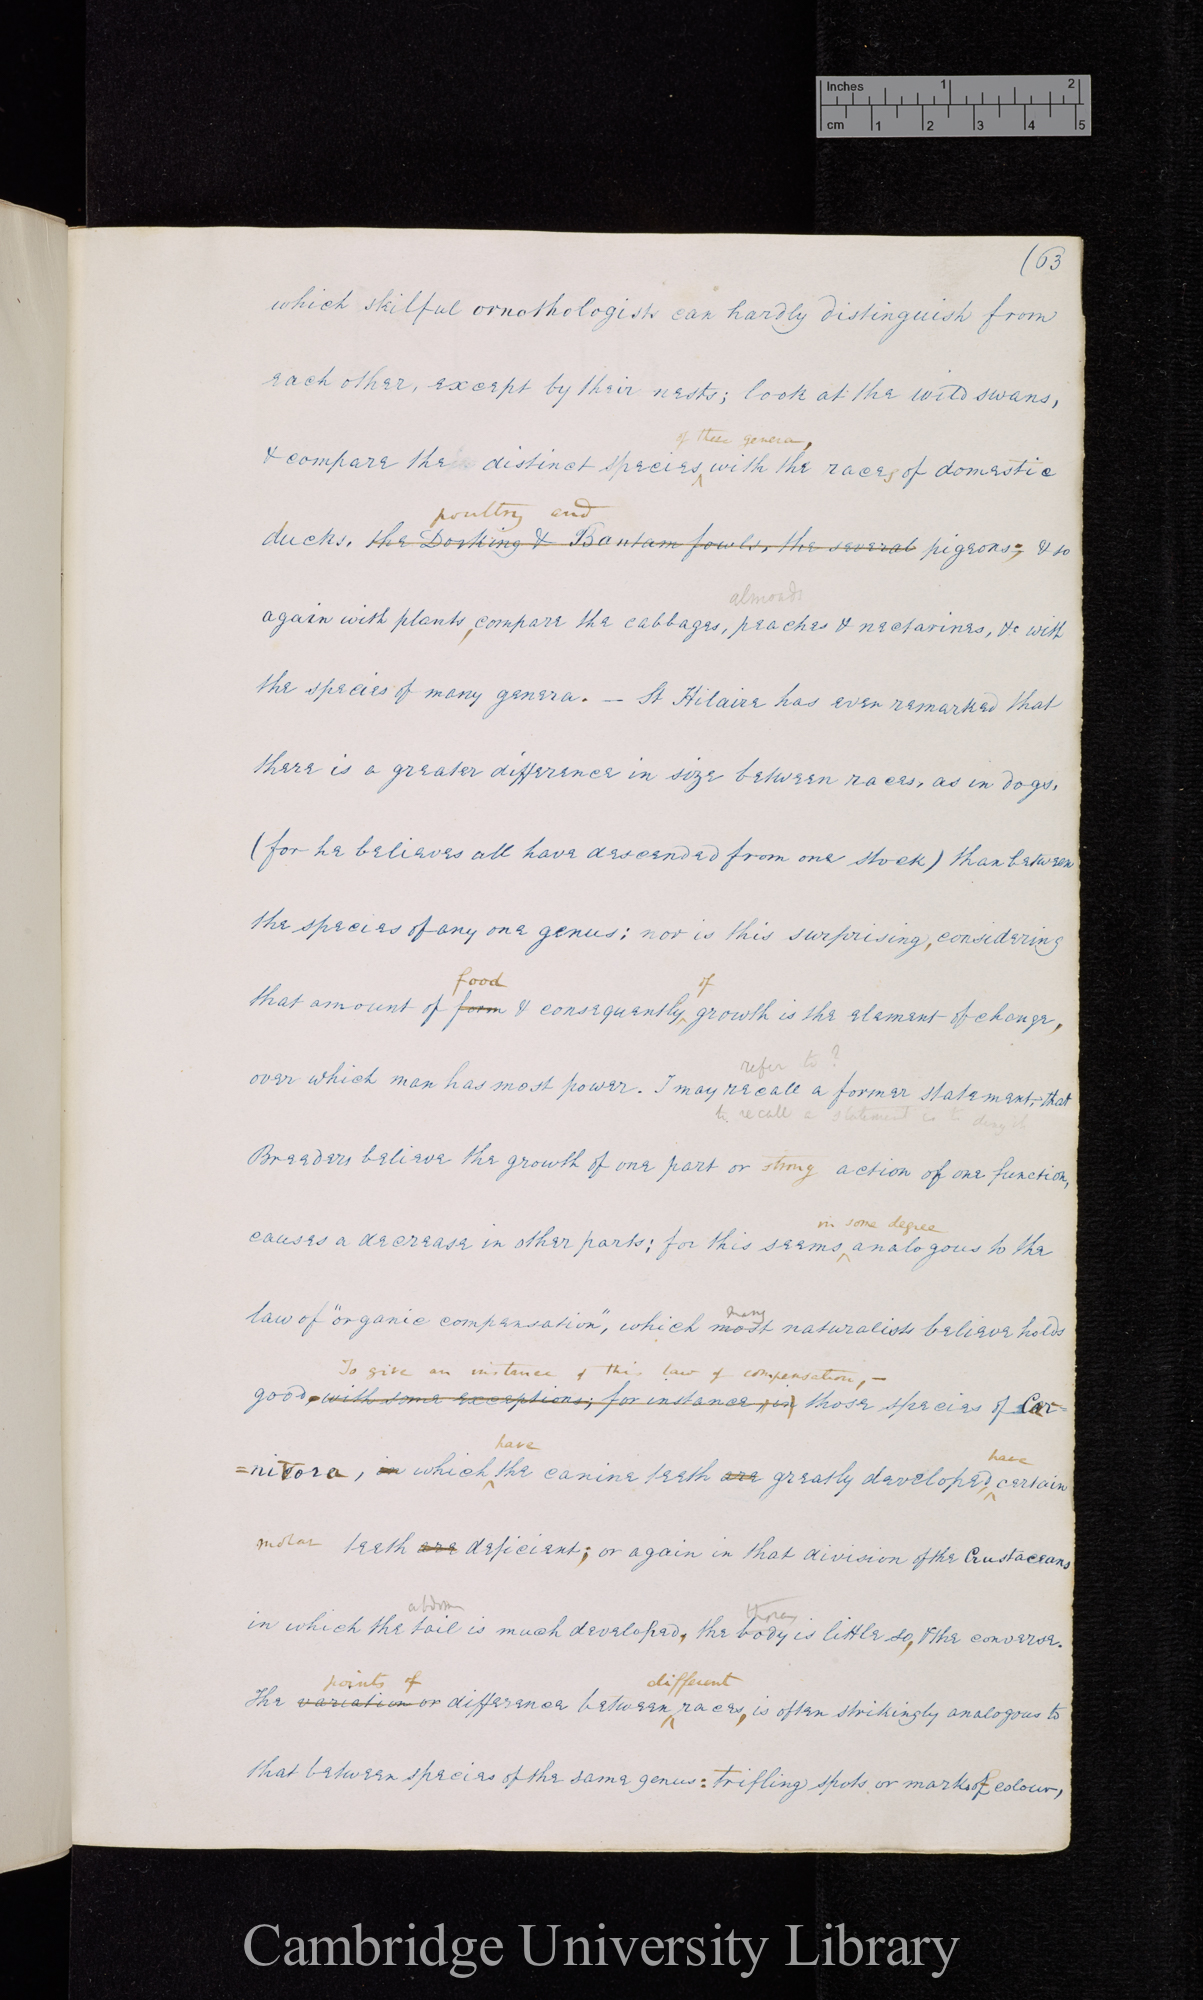 Inches 1 2
cm 1 2 3 4 5
(63
which skilful ornothologists can hardly distinguish from
each other, except by their nests; look at the wild swans,
of these genera,
& compare the distinct species with the races of domestic
poultry and
ducks, the Dorking & Bantam fowls, the several pigeons; & so
almonds
again with plants, compare the cabbages, peaches & nectarines, &c with
the species of many genera. — St Hilaire has even remarked that
there is a greater difference in size between races, as in dogs,
(for he believes all have descended from one stock) than between
the species of any one genus; nor is this surprising, considering
food of
that amount of form & consequently growth is the element of change,
refer to?
over which man has most power. I may recall a former statement, that
to recall a statement is to
Breeders believe the growth of one part or strong action of one function,
in some degree
causes a decrease in other parts; for this seems analogous to the
many
law of "organic compensation", which most naturalists believe holds
To give an instance of this law of compensation, —
good, with some exceptions; for instance, in those species of Car=
have have
=nivora, in which the canine teeth are greatly developed certain
molar teeth are deficient; or again in that division of the Crustaceans
abdomen thorax
in which the tail is much developed, the body is little so, & the converse.
points of different
The variation or difference between races, is often strikingly analogous to
that between species of the same genus: trifling spots or marks of colour,
Cambridge University Library